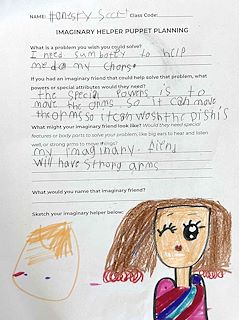 NAME: Honesty Scott Class Code:
IMAGINARY HELPER PUPPET PLANNING
What is a problem you wish you could solve?
I need sumbottey to help
me do my chors.
If you had an imaginary friend that could help solve that problem, what
powers or special attributes would they need?
the special powers is to
move the arms so it can move
the arms so it can wosh the dishis
What might your imaginary friend look like? Would they need special
features or body parts to solve your problem, like big ears to hear and listen
well, or strong arms to move things?
my imaginary friend
will have strong arms
What would you name that imaginary friend?
Sketch your imaginary helper below: